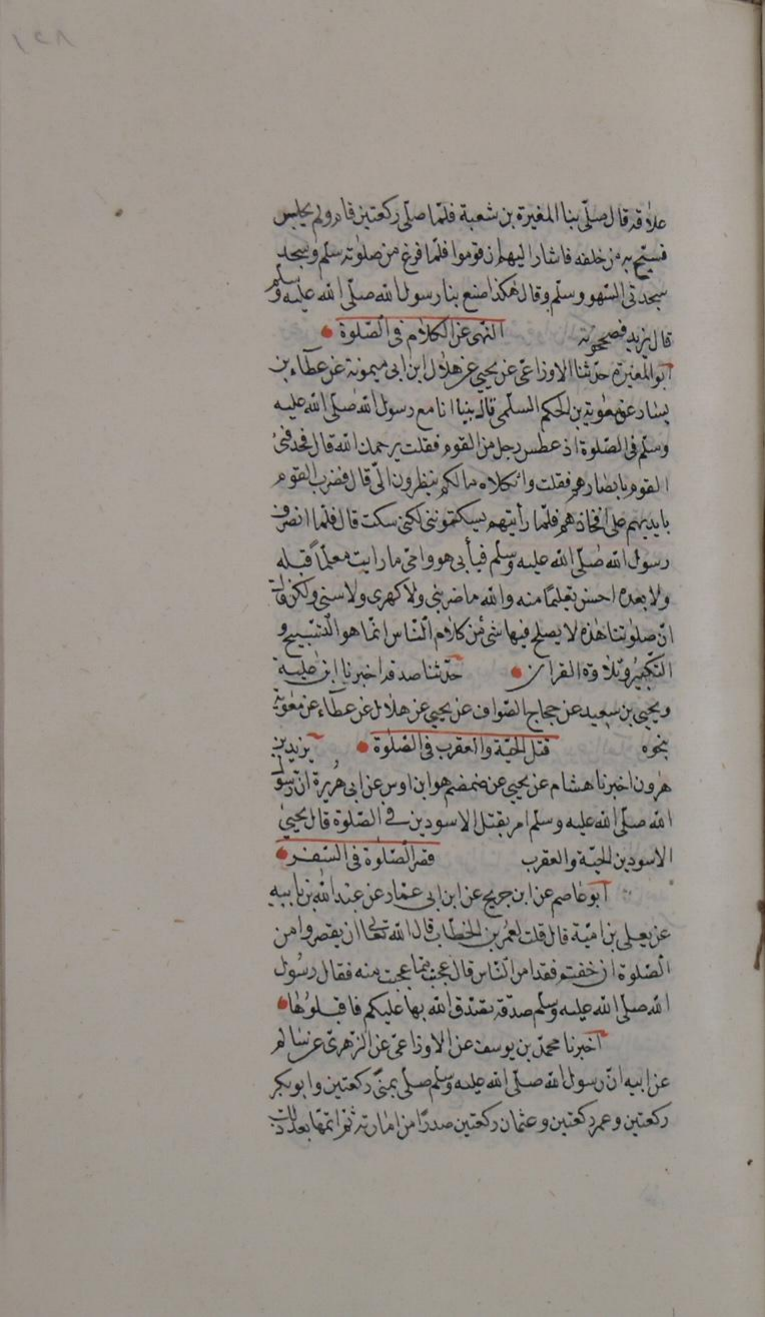 علاقة قال صلّى بنا المغيرة بن شعبة فلمّا صلّى ركعتين قام ولم يجلس
فسبّح به من خلفه فاشار اليهم ان قوموا فلمّا فرغ من صلوته سلّم وسجد
سجدتى السّهو وسلّم وقال هكذا صنع بنا رسول الله صلّى الله عليه وسلم
قال يزيد فصححونه النّهى عن الكلام فى الصّلوة
ابو المغيرة حدّثنا الاوزاعىّ عن يحيى عن هلال ابن ابى ميمونة عن عطاء بن
يسار عن معوية بن الحكم السلمى قال بينا انا مع رسول الله صلّى الله عليه
وسلّم فى الصّلوة اذ عطس رجل من القوم فقلت يرحمك الله قال فحدقنى
القوم بابصارهم فقلت واثكلاه مالكم ينظرون الىّ قال فضرب القوم
بايديهم على افخاذهم فلمّا رأيتهم يسكتوننى لكنى سكت قال فلمّا انصرف
رسول الله صلّى الله عليه وسلّم فبأبى هو وامّى ما رايت معلّماً قبله
ولا بعده احسن تعليمًا منه والله ما ضربنى ولا كهرنى ولا سبنى ولكن قال
انّ صلوتنا هذه لا يصلح فيها شئ من كلام النّاس انّما هو التّسبيح و
التّكبير وتلاوة القران حدّثنا صدقة اخبرنا ابن علية
ويحيى بن سعيد عن حجاج الصّواف عن يحيى عن هلال عن عطاء عن معوية
بنحوه قتل الحيّة والعقرب فى الصّلوة يزيد بن
هرون اخبرنا هشام عن يحيى عن ضمضم هو ابن اوس عن ابى هُريرة ان رسول
الله صلّى الله عليه وسلم امر بقتل الاسودين فى الصّلوة قال يحيى
الاسودين الحيّة والعقرب قصر الصّلوة فى السّفر
ابو عاصم عن ابن جريج عن ابن ابى عمّار عن عبد الله بن بابيه
عن يعلى بن اميّة قال قلت لعمر بن الخطّاب قال الله تعالى ان يقصروا من
الصّلوة ان خفتم فقد امن النّاس قال عجبت ممّا عجبت منه فقال رسُول
الله صلّى الله عليه وسلم صدقة تصدّق الله بها عليكم فاقبلوُها
اخبرنا محمّد بن يوسف عن الاوزاعىّ عن الزهرىّ عن سالم
عن ابيه انّ رسول الله صلّى الله عليه وسلم صلّى بمنىً ركعتين وابو بكر
ركعتين وعمر ركعتين وعثمان ركعتين صدرًا من امارته ثم اتمّها بعد ذلك